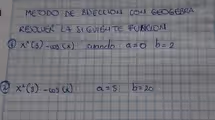 METODO DE BISECCION CON GEOGEBRA
RESOLVER LA SIGUIENTE FUNCION
① X²(3) - cos(x) cuando a=0 b=2
② X²(3) - cos(x) a=5 b=20